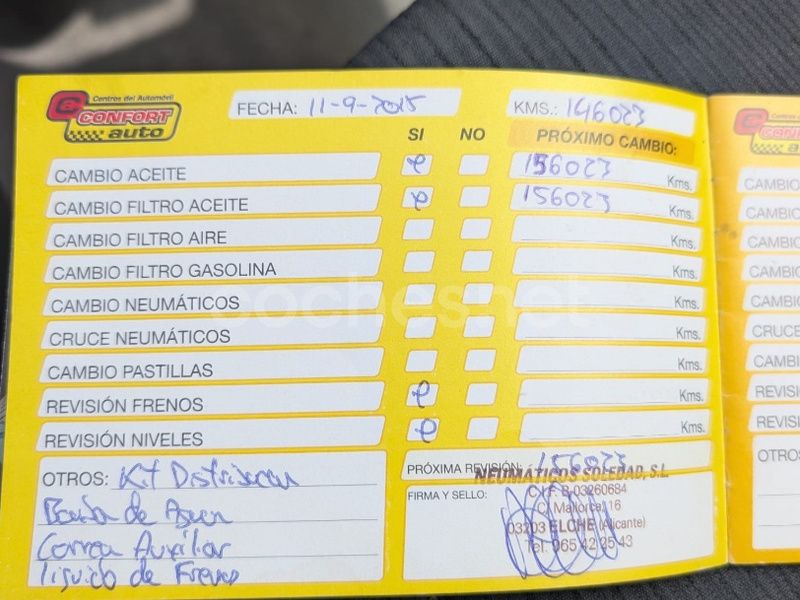 Centros del Automóvil
CONFORT
auto
FECHA: 11-9-2015
KMS.: 146023
SI NO PRÓXIMO CAMBIO:
CAMBIO ACEITE 156023 Kms.
CAMBIO FILTRO ACEITE 156023 Kms.
CAMBIO FILTRO AIRE Kms.
CAMBIO FILTRO GASOLINA Kms.
CAMBIO NEUMÁTICOS Kms.
CRUCE NEUMÁTICOS Kms.
CAMBIO PASTILLAS Kms.
REVISIÓN FRENOS Kms.
REVISIÓN NIVELES Kms.
OTROS: Kit Distribucion
Bomba de Agua
Correa Auxiliar
liquido de Frenos
PRÓXIMA REVISIÓN: 156023
FIRMA Y SELLO:
NEUMÁTICOS SOLEDAD, S.L.
C.I.F. B-03260684
C/. Mallorca, 16
03203 ELCHE (Alicante)
Tel. 965 42 35 43
coches.net
Centros d
CO
au
CAMBIO
CAMBIO
CAMBIO
CAMBIO
CAMBIO
CRUCE
CAMB
REVIS
REVIS
OTRO